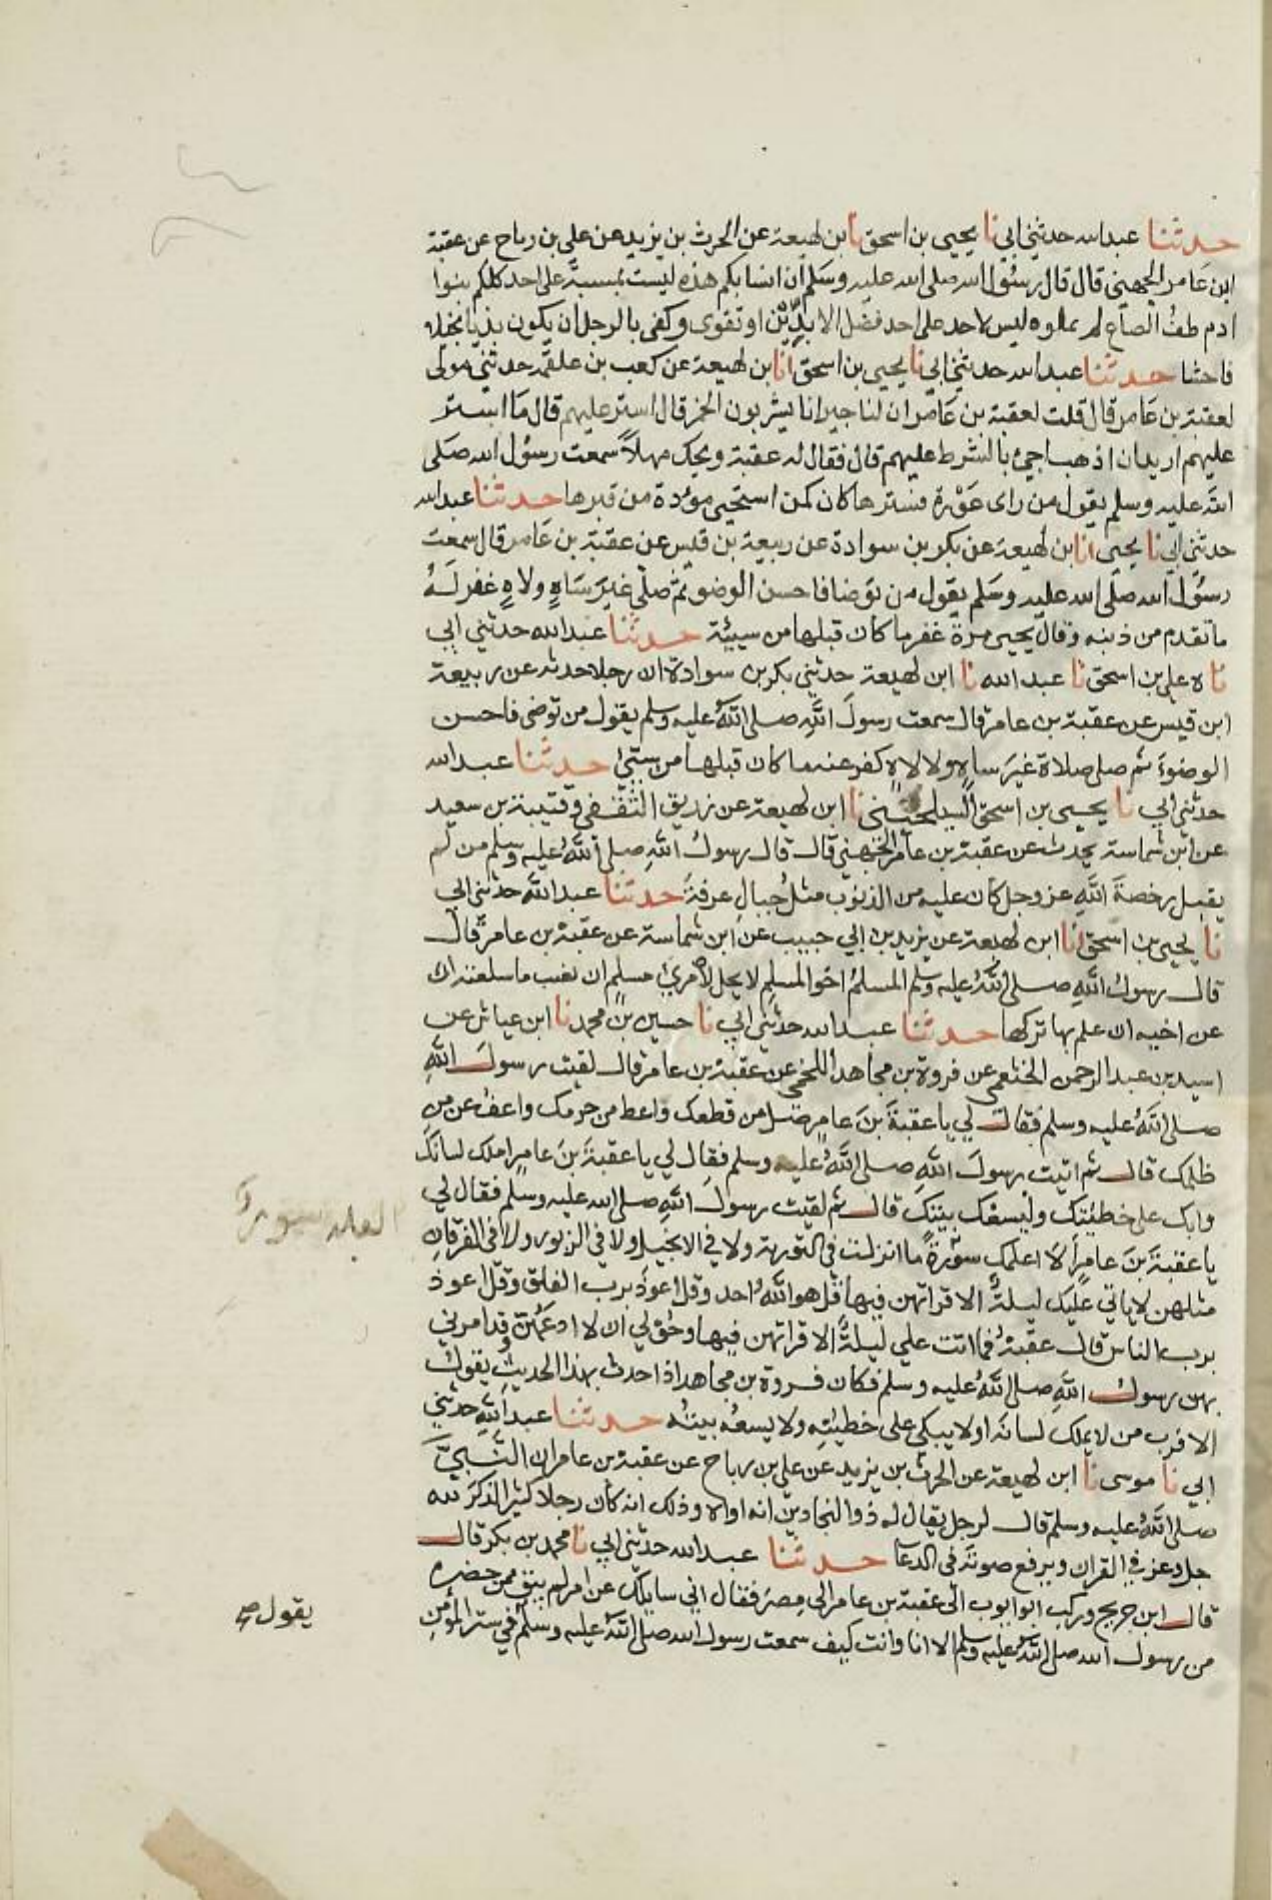 حدثنا عبدالله حدثني ابي نا يحيى بن اسحق نا ابن لهيعة عن الحرث بن يزيد عن علي بن رباح عن عقبة
ابن عامر الجهني قال قال رسول الله صلى الله عليه وسلم ان انسابكم هذه ليست بمسبة على احد كلكم بنوا
ادم طف الصاع لم يملوه ليس لاحد على احد فضل الا بدين او تقوى وكفى بالرجل ان يكون بذيا بخيلا
فاحشا حدثنا عبدالله حدثني ابي نا يحيى بن اسحق انا ابن لهيعة عن كعب بن علقمة حدثني مولى
لعقبة بن عامر قال قلت لعقبة بن عامر ان لنا جيرانا يشربون الخمر قال استر عليهم قال ما استر
عليهم اريد ان اذهب اجيء بالشرط عليهم قال فقال له عقبة ويحك مهلا سمعت رسول الله صلى
الله عليه وسلم يقول من راى عورة فسترها كان كمن استحيى موؤدة من قبرها حدثنا عبدالله
حدثني ابي نا يحيى انا ابن لهيعة عن بكر بن سوادة عن ربيعة بن قيس عن عقبة بن عامر قال سمعت
رسول الله صلى الله عليه وسلم يقول من توضا فاحسن الوضو ثم صلى غير ساه ولا لاه غفر له
ما تقدم من ذنبه وقال يحيى مرة غفر ما كان قبلها من سيئة حدثنا عبدالله حدثني ابي
نا ه علي بن اسحق نا عبد الله نا ابن لهيعة حدثني بكر بن سوادة ان رجلا حدثه عن ربيعة
ابن قيس عن عقبة بن عامر قال سمعت رسول الله صلى الله عليه وسلم يقول من توضى فاحسن
الوضوء ثم صلى صلاة غير ساه ولا لاه كفر عنه ما كان قبلها من سيئ حدثنا عبدالله
حدثني ابي نا يحيى بن اسحق السيلحيني نا ابن لهيعة عن زريق الثقفي وقتيبة بن سعيد
عن ابن شماسة يحدث عن عقبة بن عامر الجهني قال قال رسول الله صلى الله عليه وسلم من لم
يقبل رخصة الله عز وجل كان عليه من الذنوب مثل جبال عرفة حدثنا عبدالله حدثني ابي
نا يحيى بن اسحق انا ابن لهيعة عن يزيد بن ابي حبيب عن ابن شماسة عن عقبة بن عامر قال
قال رسول الله صلى الله عليه وسلم المسلم اخو المسلم لا يحل لامرئ مسلم ان يغيب ما بسلعته
عن اخيه ان علم بها تركها حدثنا عبدالله حدثني ابي نا حسين بن محمد نا ابن عياش عن
اسيد بن عبد الرحمن الخثعمي عن فروة بن مجاهد اللخمي عن عقبة بن عامر قال لقيت رسول الله
صلى الله عليه وسلم فقال لي يا عقبة بن عامر صل من قطعك واعط من حرمك واعف عن من
ظلمك قال ثم اتيت رسول الله صلى الله عليه وسلم فقال لي يا عقبة بن عامر املك لسانك
وابك على خطيئتك وليسعك بيتك قال ثم لقيت رسول الله صلى الله عليه وسلم فقال لي
يا عقبة بن عامر الا اعلمك سورة ما انزلت في التورىة ولا في الانجيل ولا في الزبور ولا في الفرقان
مثلهن لا ياتي عليك ليلة الا قراتهن فيها قل هو الله احد وقل اعوذ برب الفلق وقل اعوذ
برب الناس قال عقبة فما اتت علي ليلة الا قراتهن فيها وحق لي ان لا ادعهن وقد امرني
بهن رسول الله صلى الله عليه وسلم فكان فروة بن مجاهد اذا حدث بهذا الحديث يقول
الا فرب من لا يملك لسانه او لا يبكي على خطيئته ولا يسعه بيته حدثنا عبدالله حدثني
ابي نا موسى نا ابن لهيعة عن الحرث بن يزيد عن علي بن رباح عن عقبة بن عامر ان النبي
صلى الله عليه وسلم قال لرجل يقال له ذو النجادين انه اواه وذلك انه كان رجلا كثير الذكر لله
جل وعز في القران ويرفع صوته في الدعا حدثنا عبدالله حدثني ابي نا محمد بن بكر قال
قال ابن جريج وركب ابو ايوب الى عقبة بن عامر الى مصر فقال اني سايلك عن امر لم يبق ممن حضره
من رسول الله صلى الله عليه وسلم الا انا وانت كيف سمعت رسول الله صلى الله عليه وسلم في ستر المؤمن
يقول ص